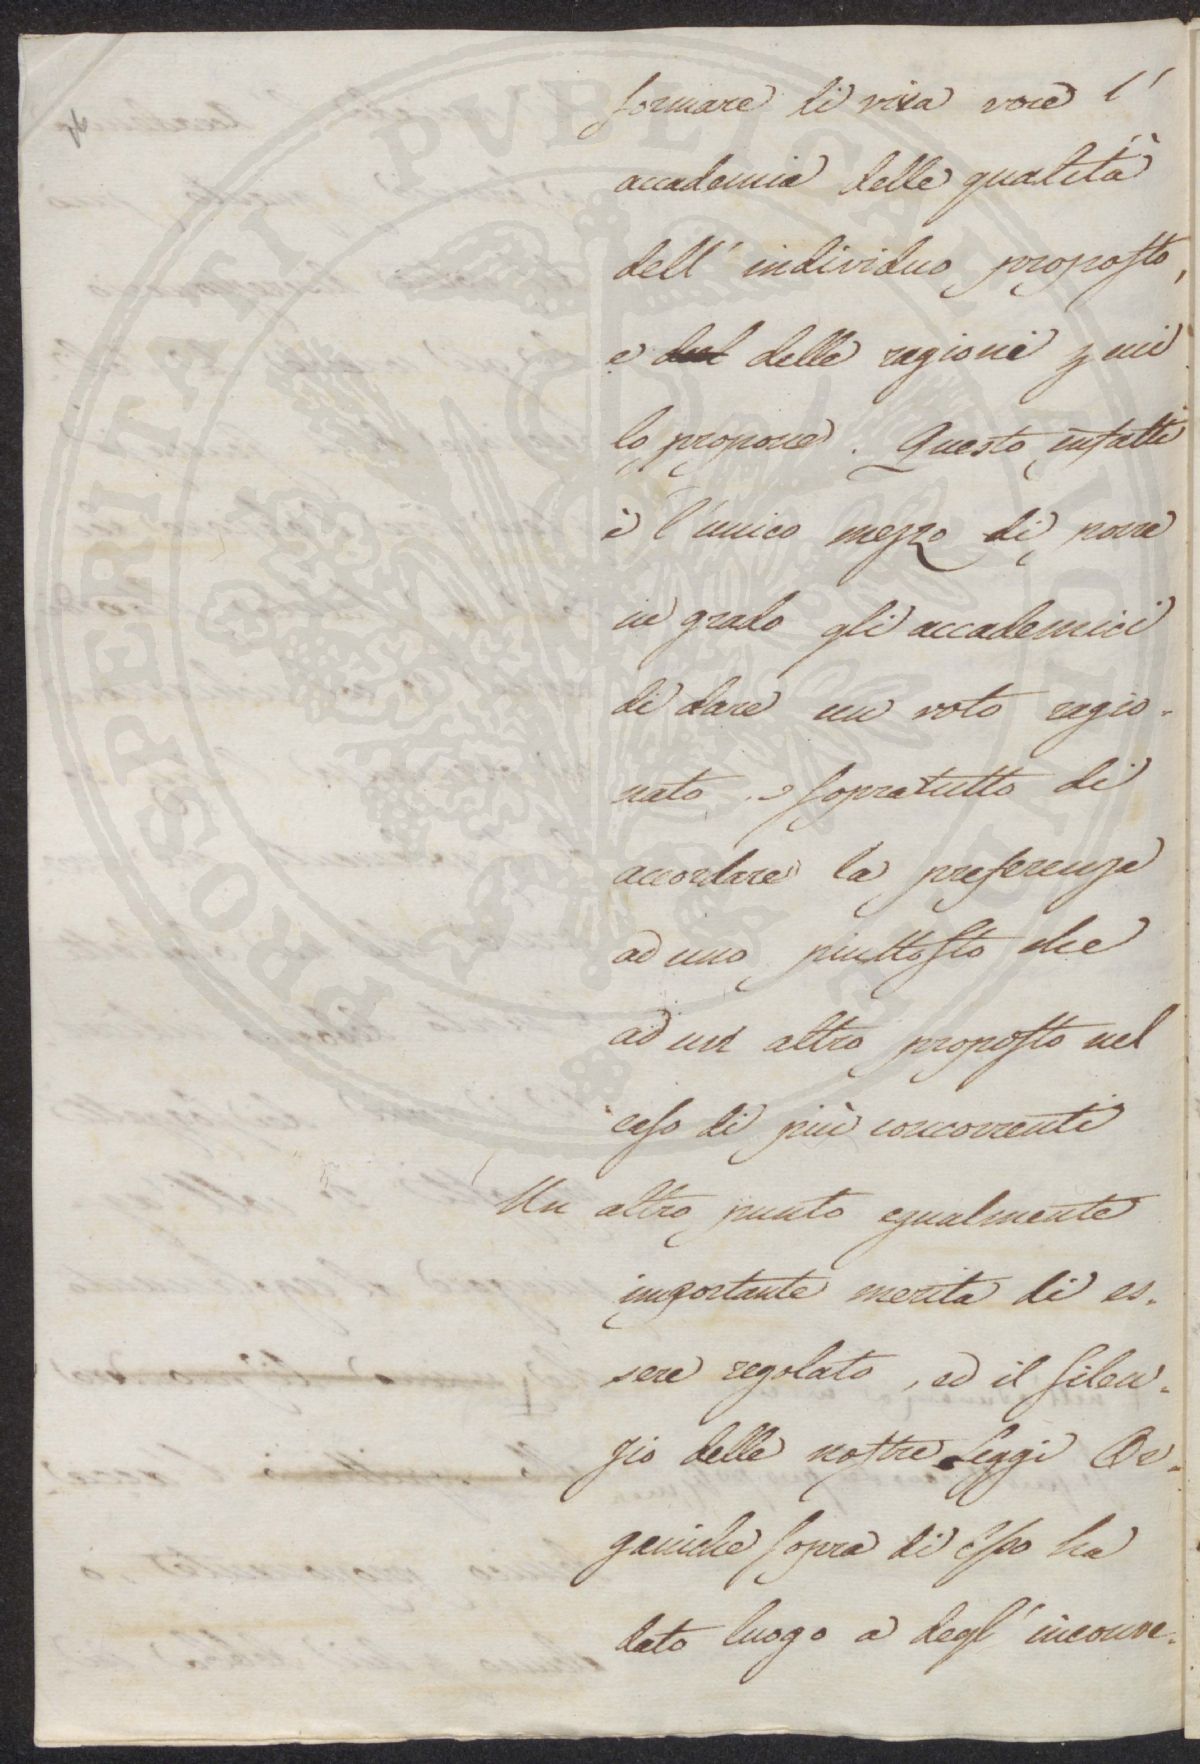 formare di viva voce l'
accademia delle qualità
dell' individuo proposto,
e delle ragioni p cui
lo propone. Questo infatti
è l'unico mezzo di porre
in grado gli accademici
di dare un voto ragio-
nato, e sopratutto di
accordare la preferenza
ad uno piuttosto che
ad un altro proposto nel
caso di più concorrenti
Un altro punto egualmente
importante merita di es-
sere regolato, ed il silen-
zio delle nostre Leggi Or-
ganiche sopra di esso ha
dato luogo a degl' inconve-
PROSPERITATI PUBLICAE